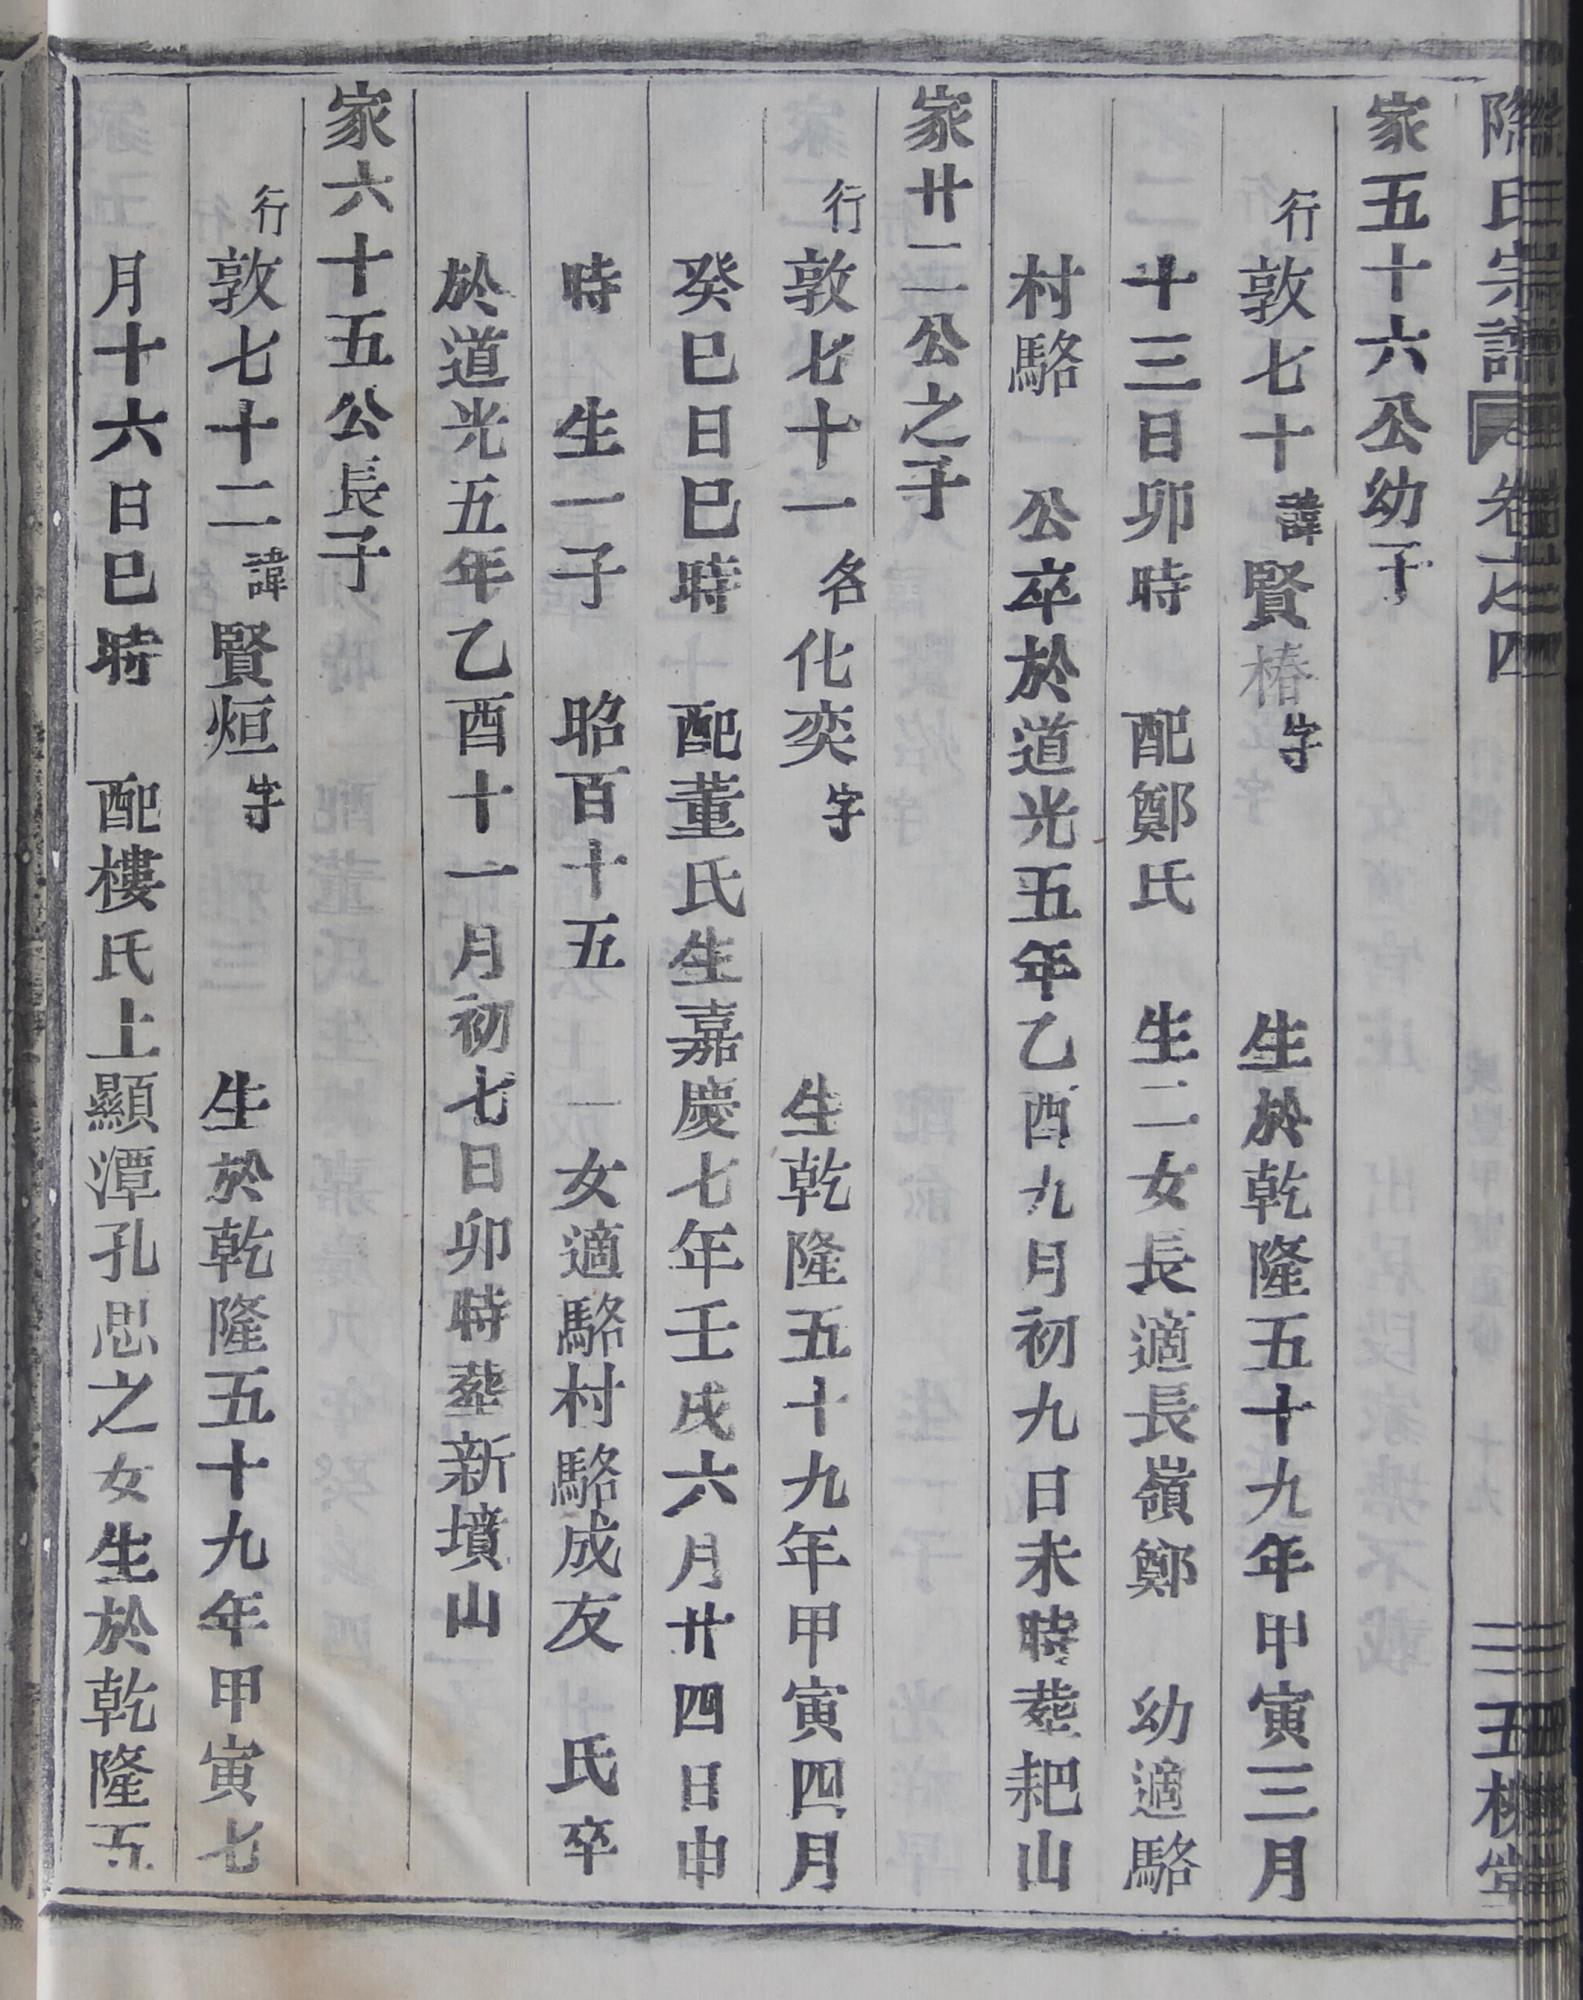 氏宗譜 卷之四 三五桃堂
家五十六公幼子
行敦七十諱賢椿字 生於乾隆五十九年甲寅三月
十三日卯時 配鄭氏 生二女長適長嶺鄭 幼適駱
村駱 公卒於道光五年乙酉九月初九日未時塟耙山
家廿二公之子
行敦七十一名化奕字 生乾隆五十九年甲寅四月
癸巳日巳時 配董氏生嘉慶七年壬戌六月廿四日申
時 生一子 昭百十五 一女適駱村駱成友 氏卒
於道光五年乙酉十一月初七日卯時塟新墳山
家六十五公長子
行敦七十二諱賢烜字 生於乾隆五十九年甲寅七
月十六日巳時 配樓氏上顯潭孔思之女生於乾隆五